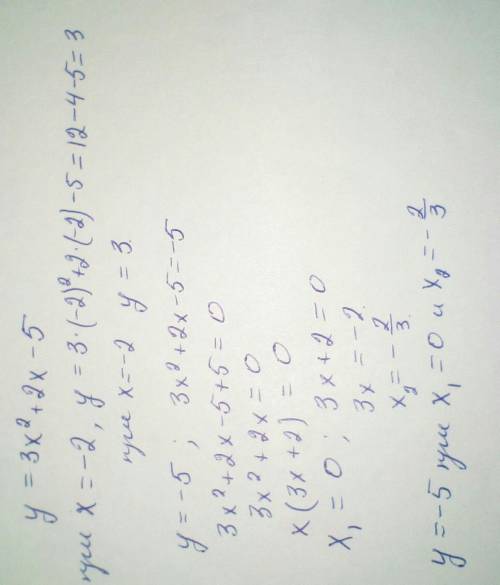 y = 3x² + 2x - 5
при x = -2, y = 3·(-2)² + 2·(-2) - 5 = 12 - 4 - 5 = 3
при x = -2 y = 3.
y = -5; 3x² + 2x - 5 = -5
3x² + 2x - 5 + 5 = 0
3x² + 2x = 0
x(3x + 2) = 0
x₁ = 0; 3x + 2 = 0
3x = -2.
x₂ = -2/3.
y = -5 при x₁ = 0 и x₂ = -2/3